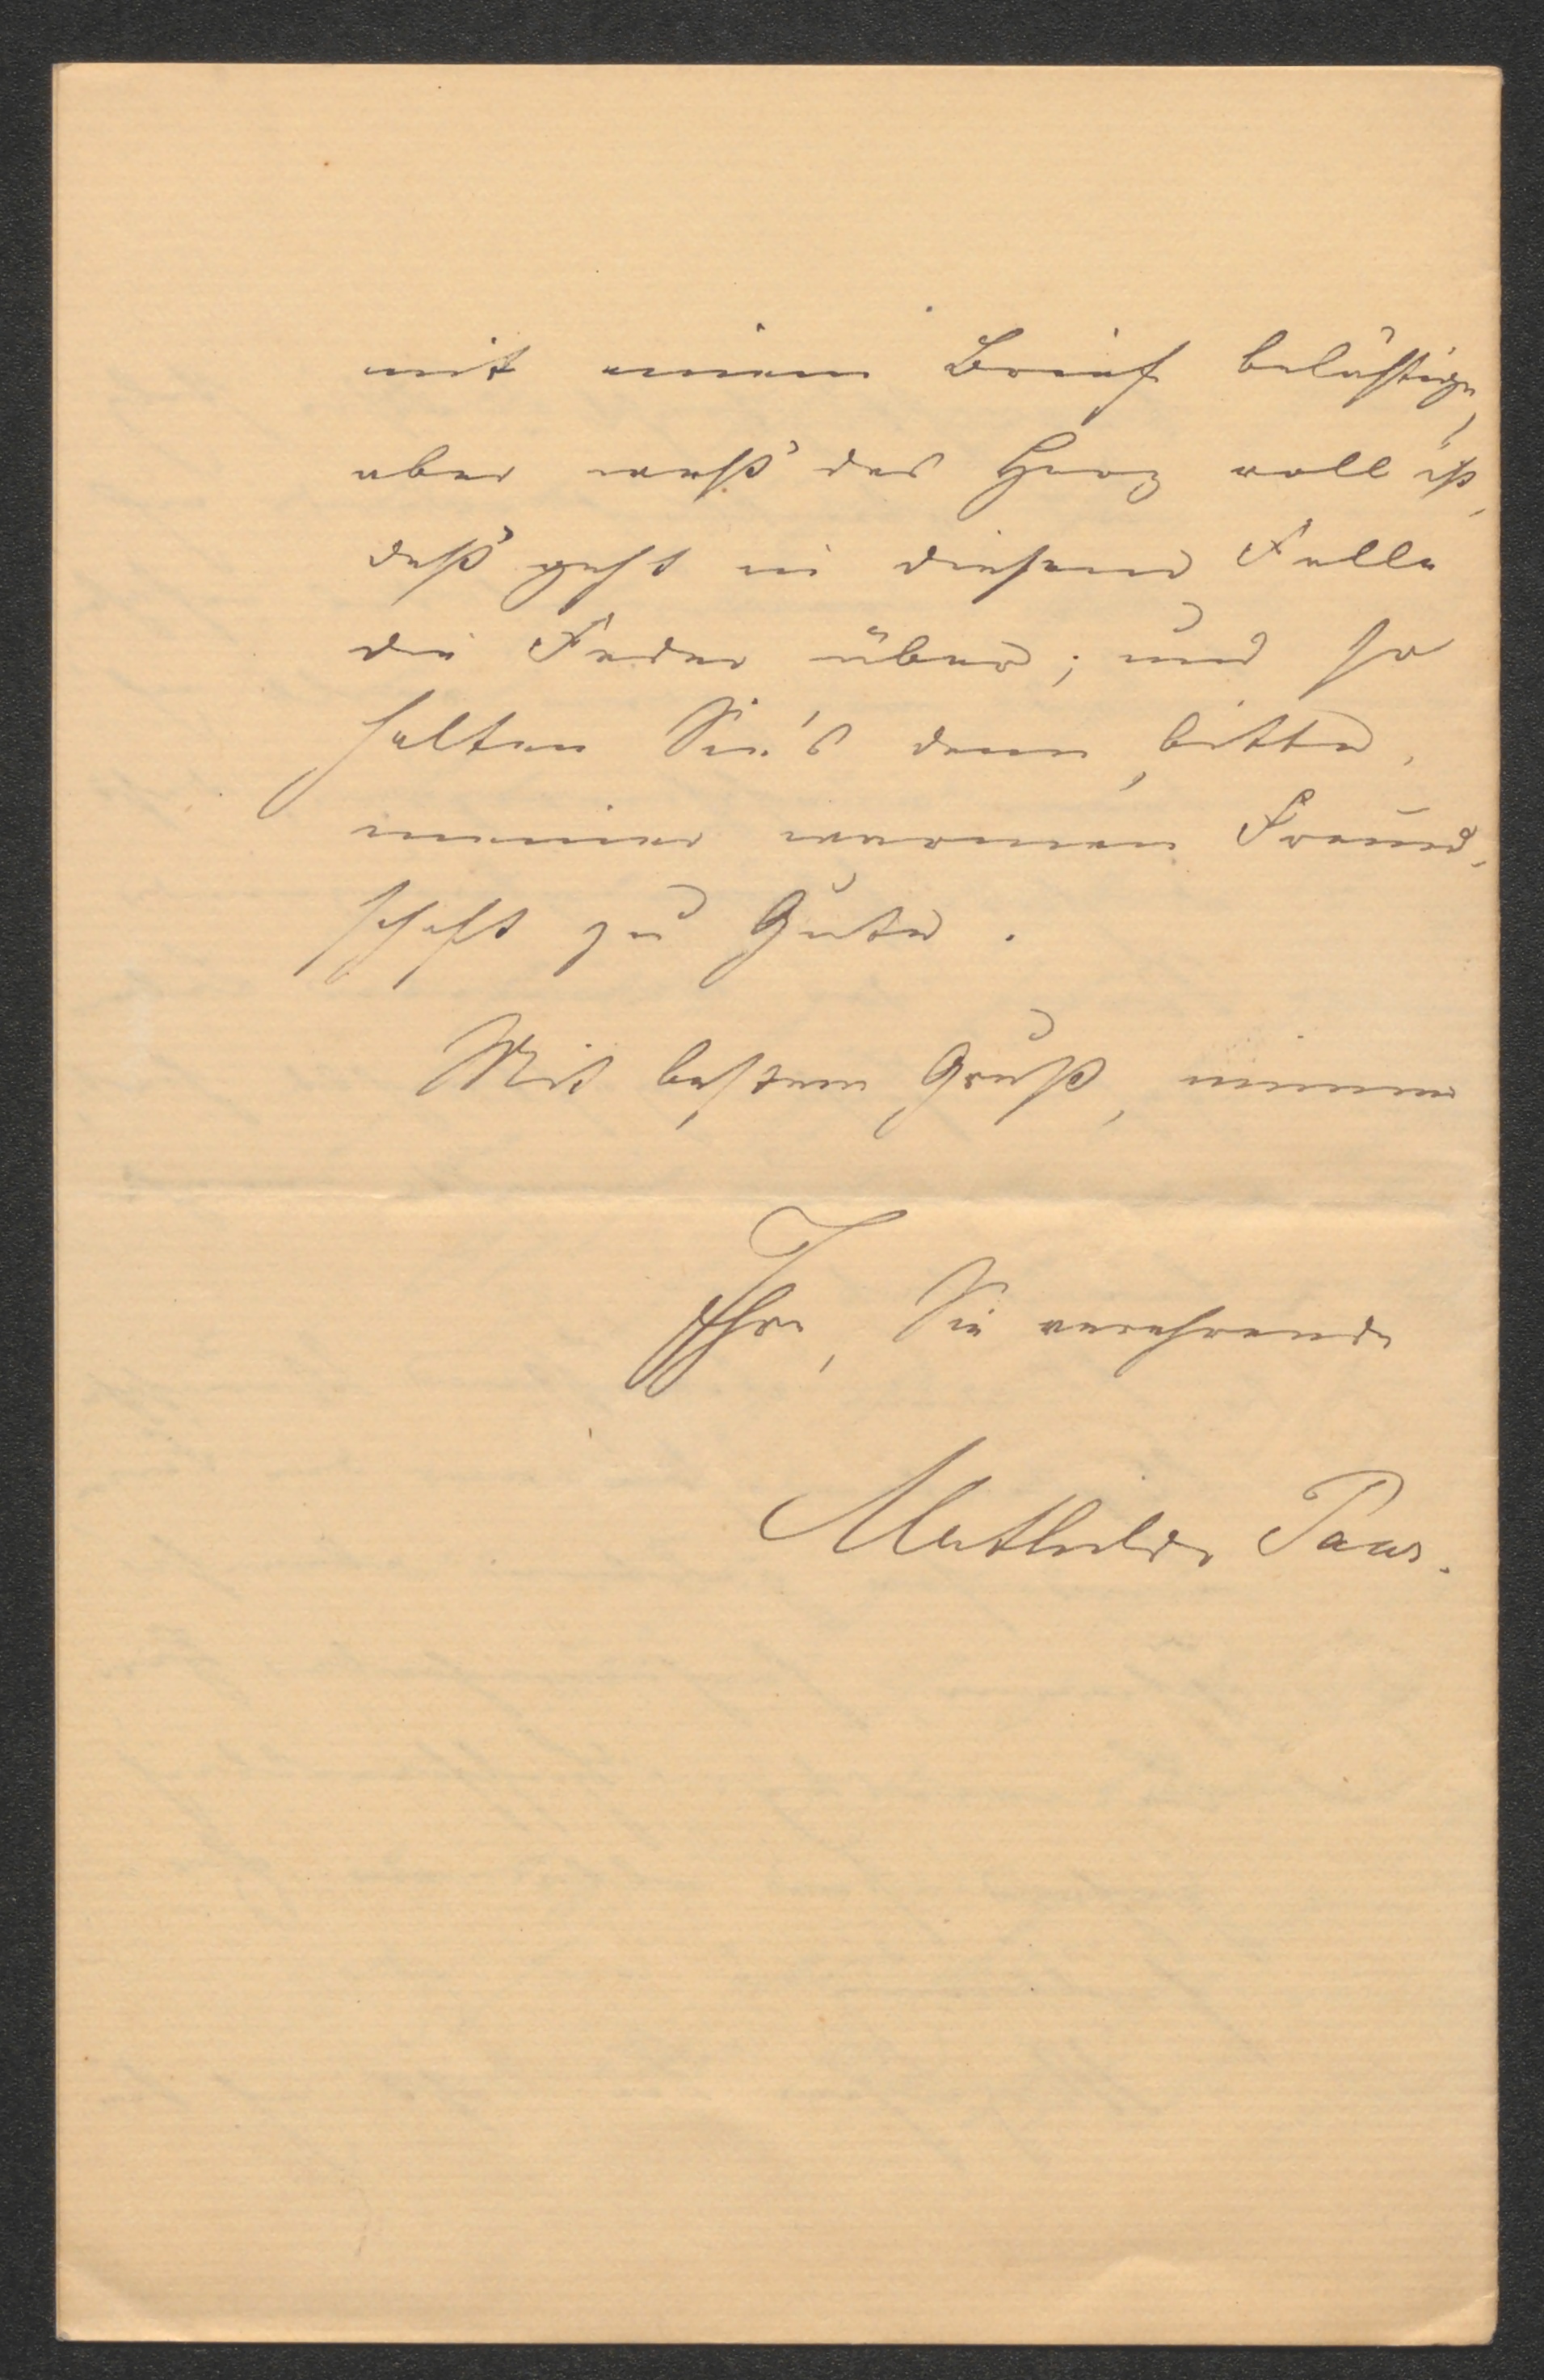 mit einem Brief belästige,
aber weß' das Herz voll ist,
deß' geht in diesem Falle
die Feder über; und so
halten Sie's denn, bitte,
meiner warmen Freund-
schaft zu Gute.
Mit bestem Gruß, immer
Ihre, Sie verehrende
Mathilde Paar.